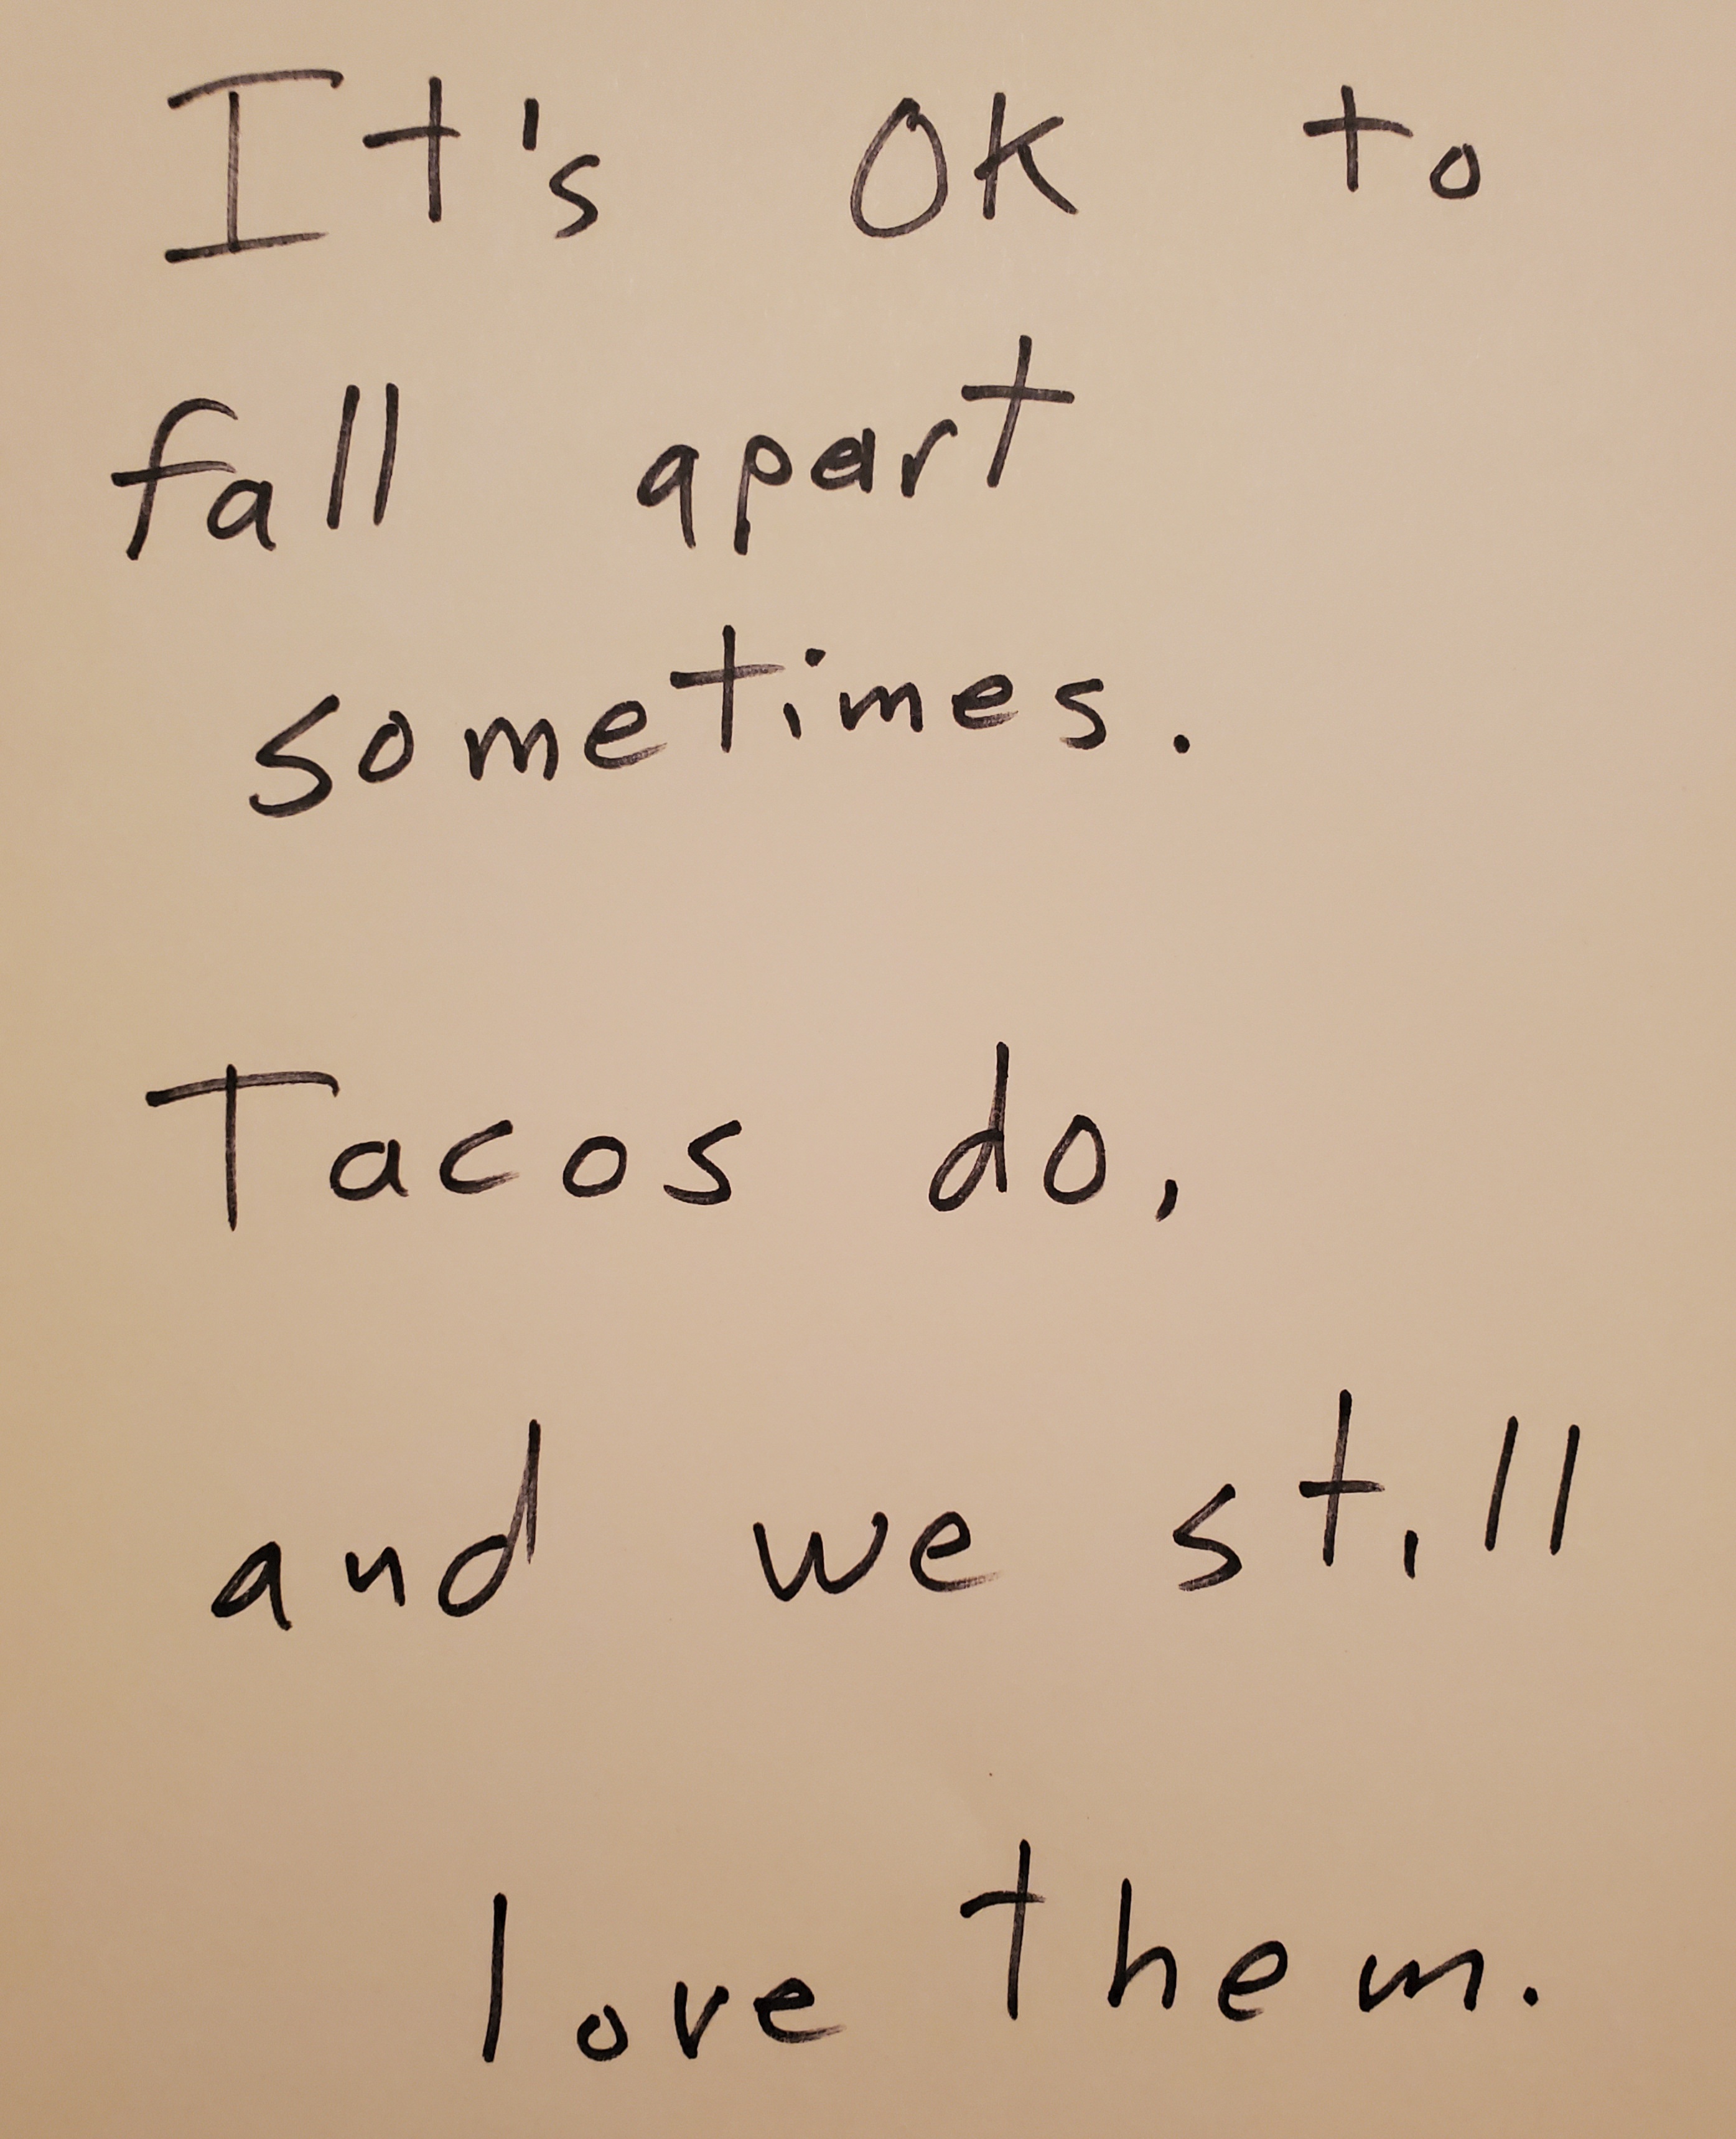 It's OK to
fall apart
sometimes.
Tacos do,
and we still
love them.